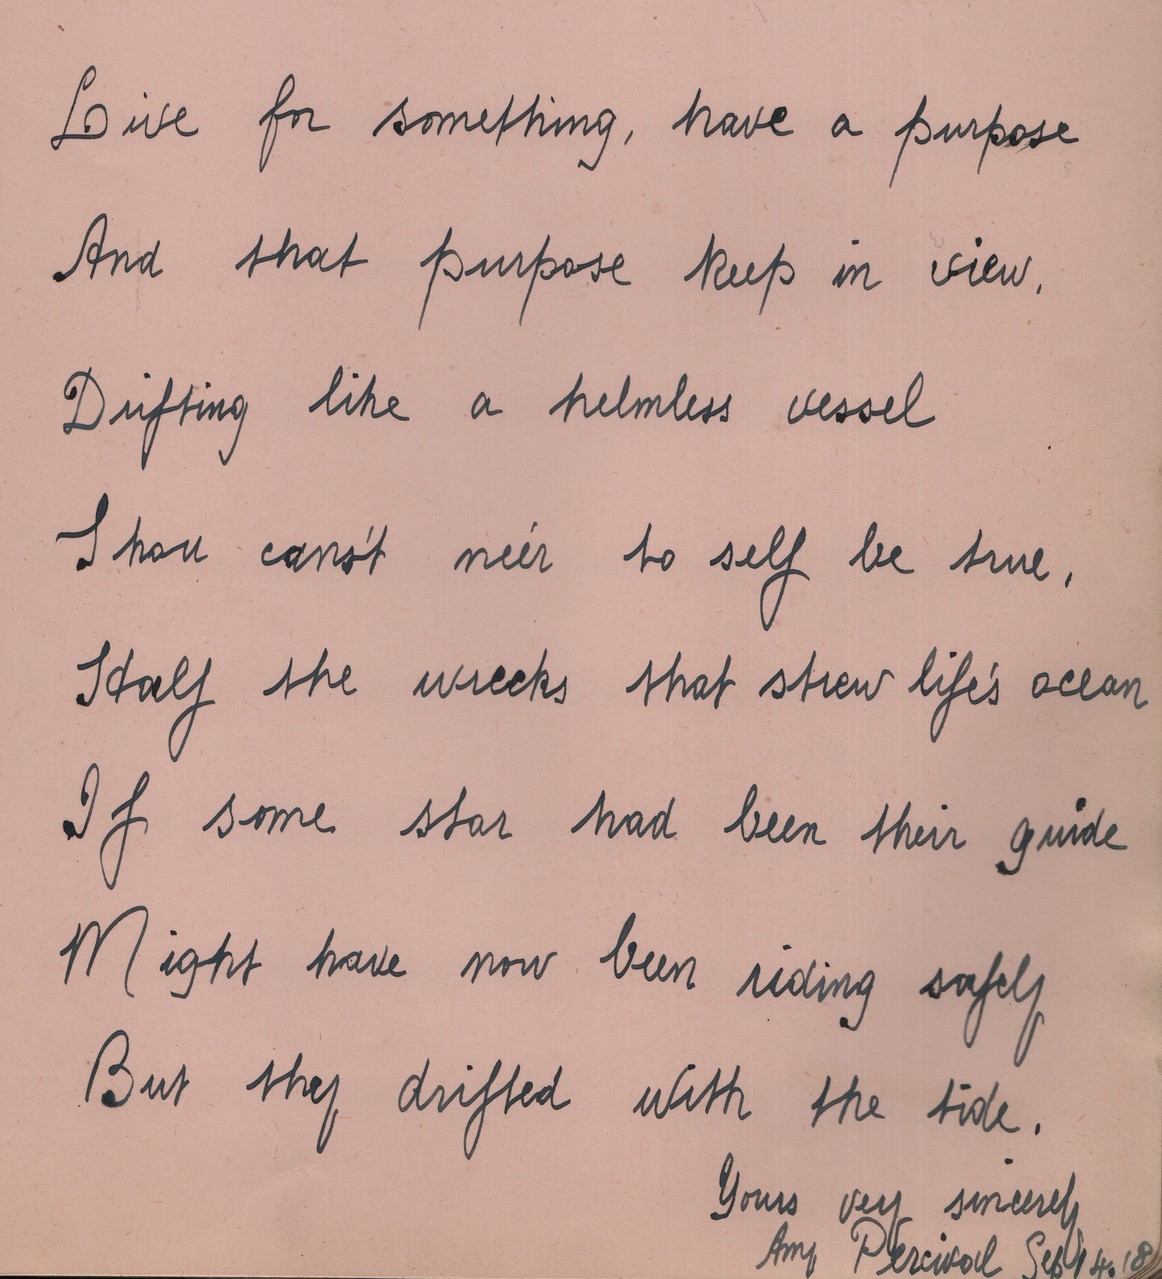 Live for something, have a purpose
And that purpose keep in view.
Drifting like a helmless vessel
Thou cans't ne'er to self be true.
Half the wrecks that strew life's ocean
If some star had been their guide
Might have now been riding safely
But they drifted with the tide.
Yours very sincerely
Amy Percival Sept 4. 18